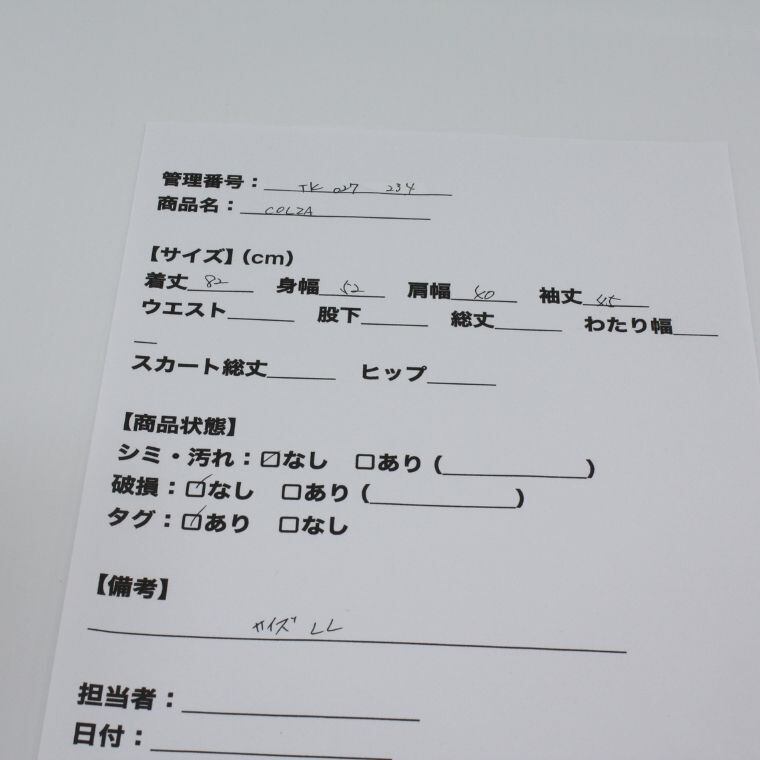 管理番号：TK 027 234
商品名：COLZA
【サイズ】(cm)
着丈 82 身幅 52 肩幅 40 袖丈 45
ウエスト______ 股下______ 総丈______ わたり幅____
__
スカート総丈______ ヒップ______
【商品状態】
シミ・汚れ：☑なし □あり (____________)
破損：☑なし □あり (____________)
タグ：☑あり □なし
【備考】
サイズ LL
担当者：____________
日付：____________